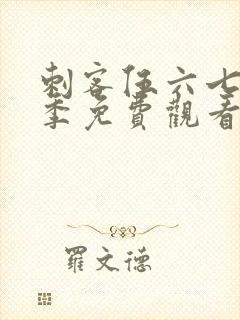 刺客伍六七
季免費觀看
羅文德